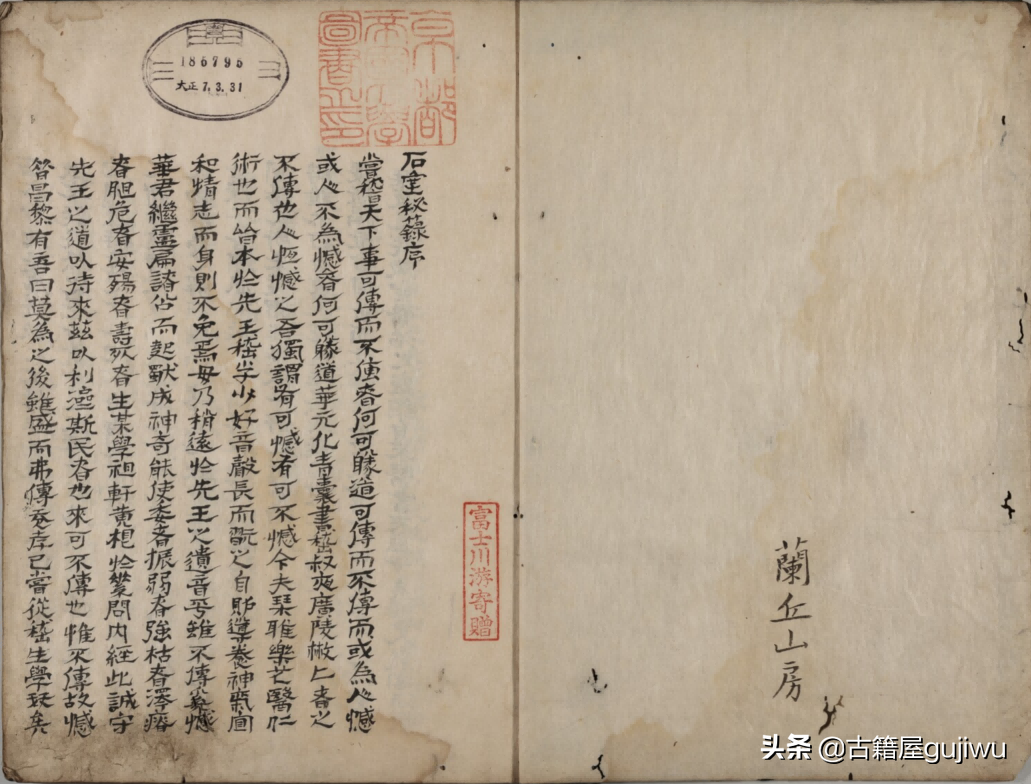 蘭丘山房
京都
帝國大學
圖書之印
186795
大正 7.3.31
富士川游寄贈
石室秘籙序
嘗稽天下事可傳而不傳者何可勝道可傳而不傳而或為人憾
或人不為憾者何可勝道華元化青囊書嵇叔夜廣陵散匕者之
不傳也人恆憾之吾獨謂有可憾有可不憾今夫琴雅樂也醫仁
術也而皆本於先王嵇字少好音聲長而翫之自導養神氣宣
和情志而身則不免焉毋乃稍遠於先王之遺音乎雖不傳奚憾
華君繼靈扁諸公而起厥成神奇能使委者振弱者強枯者澤瘠
者胆危者安殤者壽死者生某學祖軒黃相於問內經此誠守
先王之道以待來茲以利濟斯民者也來可不傳也惟不傳故憾
昌黎有言曰莫為之後雖盛而弗傳已嘗從嵇生學琴矣
头条 @古籍屋gujiwu